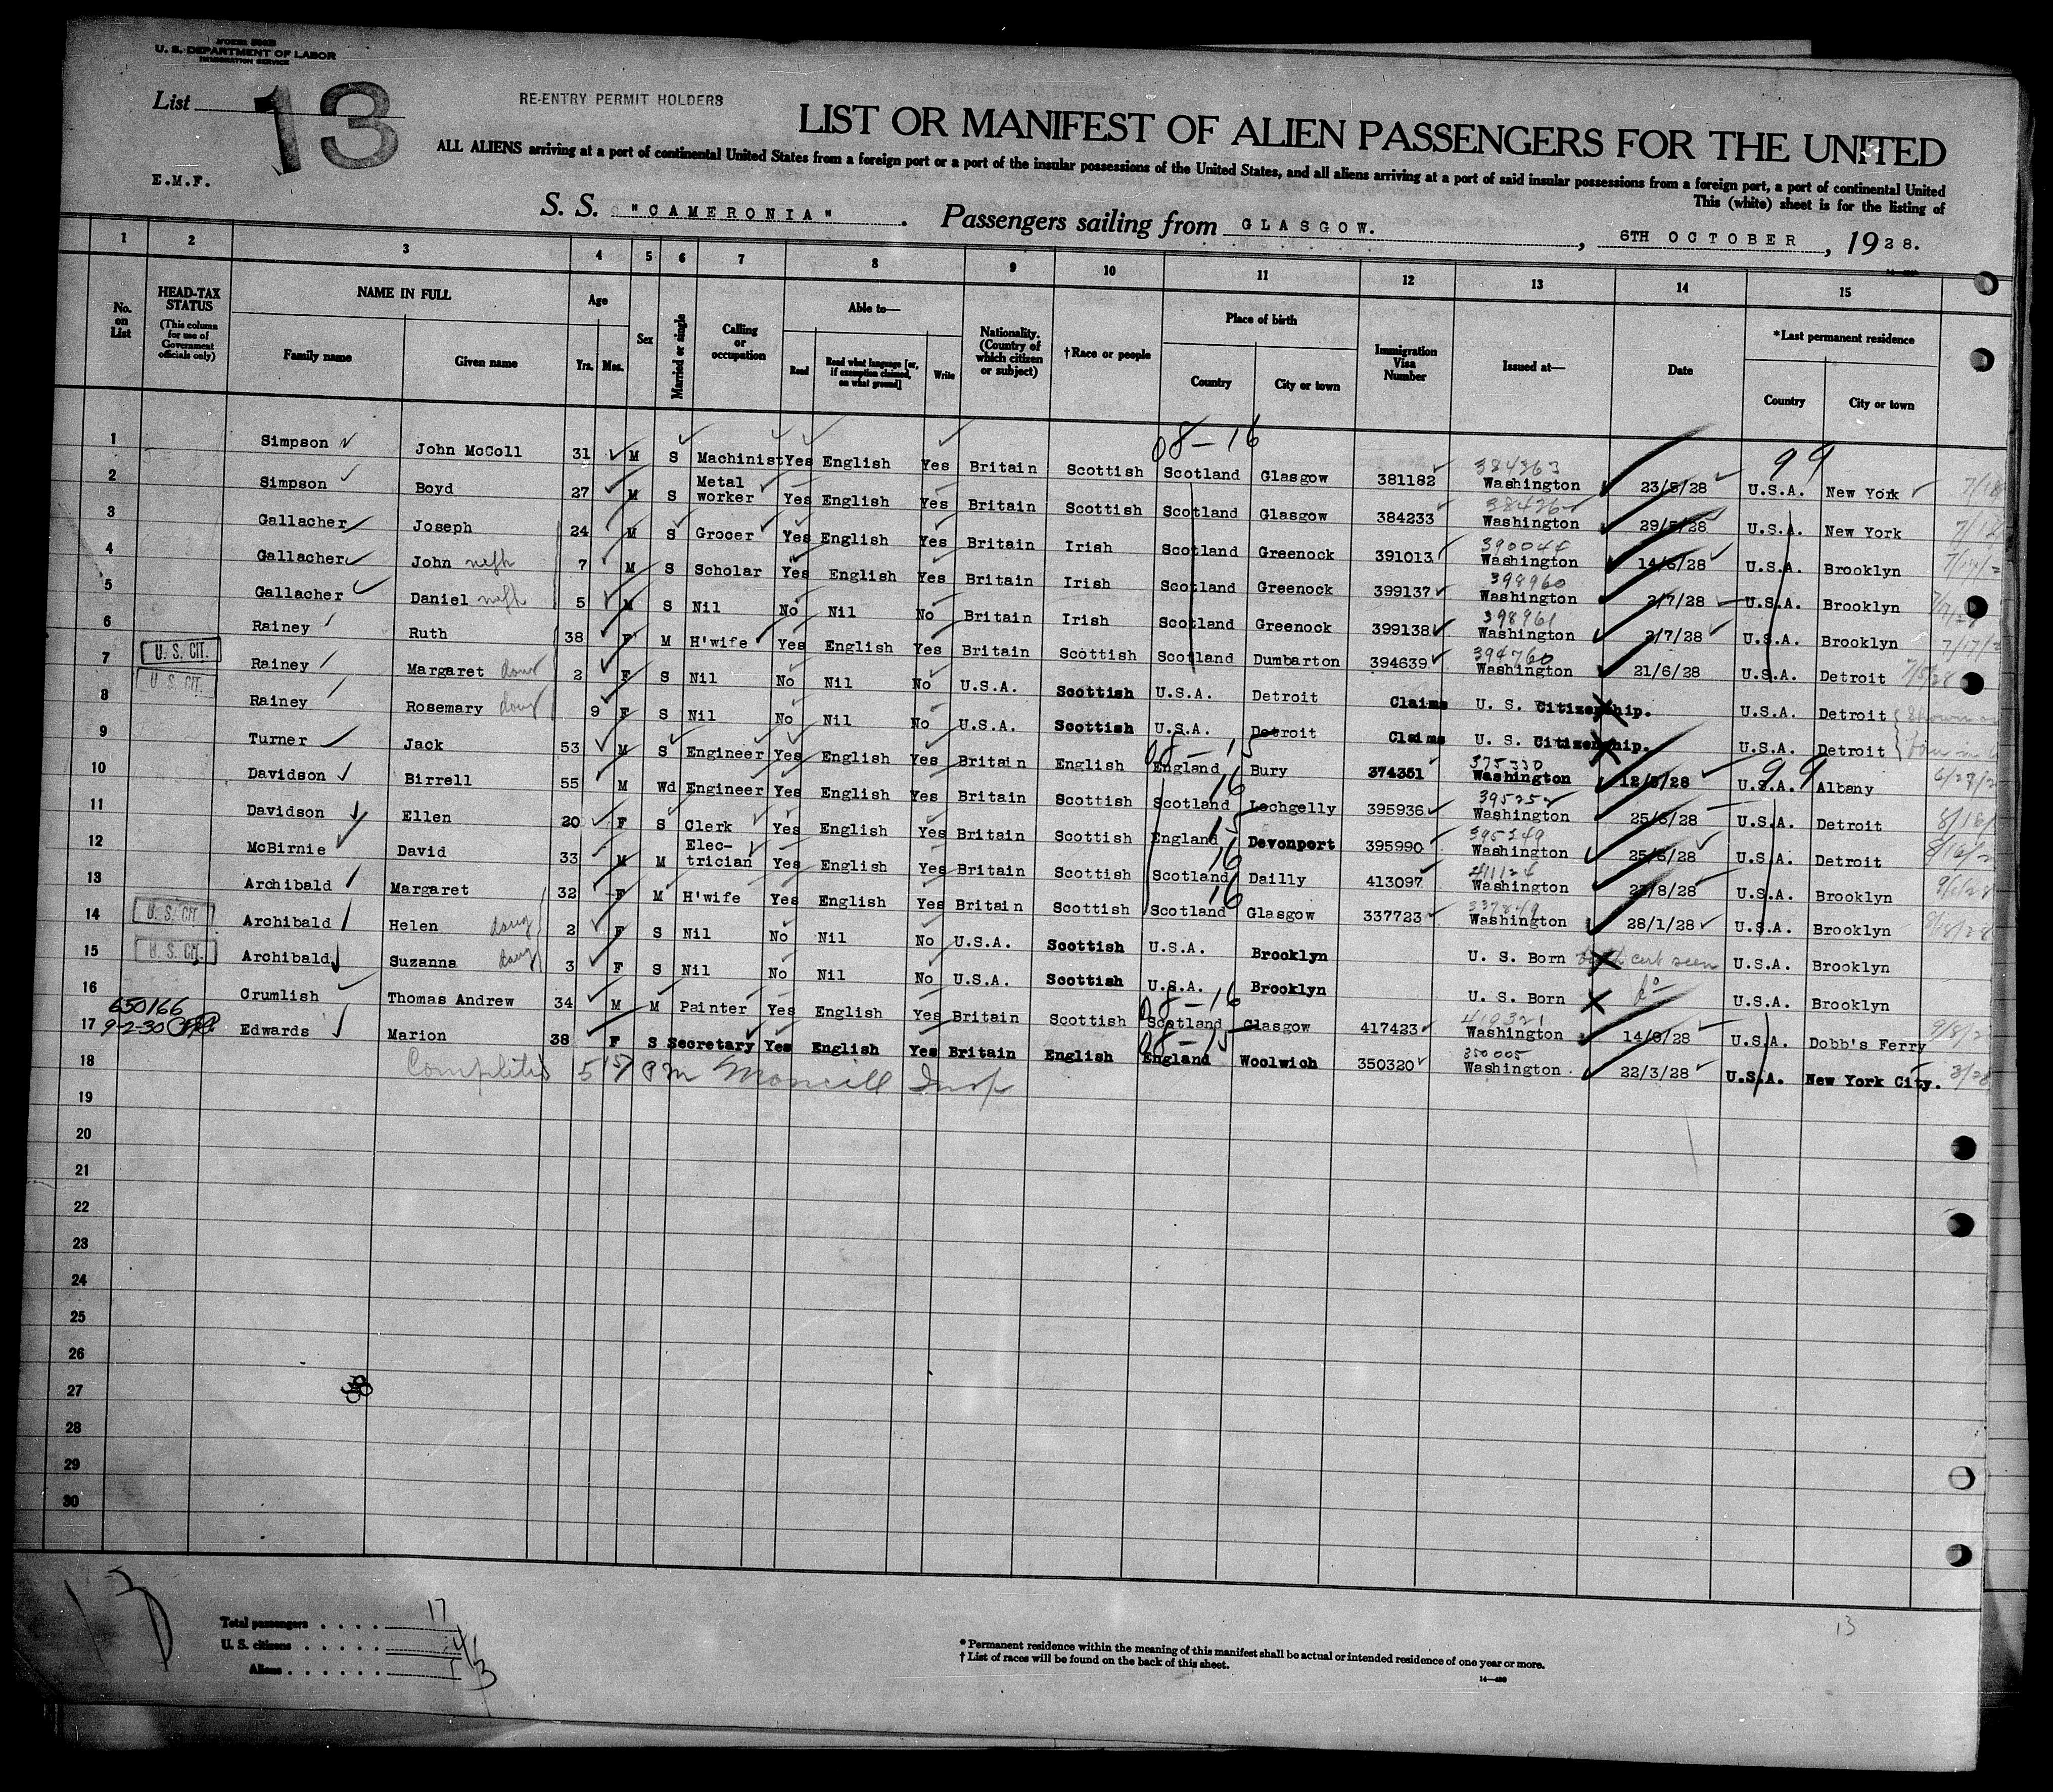 U. S. DEPARTMENT OF LABOR
IMMIGRATION SERVICE
List 13
RE-ENTRY PERMIT HOLDERS
LIST OR MANIFEST OF ALIEN PASSENGERS FOR THE UNITED
ALL ALIENS arriving at a port of continental United States from a foreign port or a port of the insular possessions of the United States, and all aliens arriving at a port of said insular possessions from a foreign port, a port of continental United
This (white) sheet is for the listing of
E.M.F.
S. S. "CAMERONIA". Passengers sailing from GLASGOW. , 6TH OCTOBER , 1928.
1 2 3 4 5 6 7 8 9 10 11 12 13 14 15
No. on List
HEAD-TAX STATUS (This column for use of Government officials only)
NAME IN FULL
Family name Given name
Age
Yrs. Mos.
Sex
Married or single
Calling or occupation
Able to—
Read Read what language [or, if exemption claimed, on what ground] Write
Nationality. (Country of which citizen or subject)
†Race or people
Place of birth
Country City or town
Immigration Visa Number
Issued at—
Date
*Last permanent residence
Country City or town
08-16 384363 99
1 Simpson John McColl 31 M S Machinist Yes English Yes Britain Scottish Scotland Glasgow 381182 Washington 23/5/28 U.S.A. New York
2 Simpson Boyd 27 M S Metal worker Yes English Yes Britain Scottish Scotland Glasgow 384233 Washington 29/5/28 U.S.A. New York
390044
3 Gallacher Joseph 24 M S Grocer Yes English Yes Britain Irish Scotland Greenock 391013 Washington 14/6/28 U.S.A. Brooklyn
398960
4 Gallacher John neph 7 M S Scholar Yes English Yes Britain Irish Scotland Greenock 399137 Washington 2/7/28 U.S.A. Brooklyn
398961
5 Gallacher Daniel neph 5 M S Nil No Nil No Britain Irish Scotland Greenock 399138 Washington 2/7/28 U.S.A. Brooklyn
394760
6 Rainey Ruth 38 F M H'wife Yes English Yes Britain Scottish Scotland Dumbarton 394639 Washington 21/6/28 U.S.A. Detroit 7/5/28
7 U. S. CIT. Rainey Margaret daur 2 F S Nil No Nil No U.S.A. Scottish U.S.A. Detroit Claims U. S. Citizenship. U.S.A. Detroit
8 U. S. CIT. Rainey Rosemary daug 9 F S Nil No Nil No U.S.A. Scottish U.S.A. Detroit Claims U. S. Citizenship. U.S.A. Detroit
08-15 375330 99
9 Turner Jack 53 M S Engineer Yes English Yes Britain English England Bury 374351 Washington 12/5/28 U.S.A. Albany
16 395252
10 Davidson Birrell 55 M Wd Engineer Yes English Yes Britain Scottish Scotland Lochgelly 395936 Washington 25/6/28 U.S.A. Detroit
15 395249
11 Davidson Ellen 20 F S Clerk Yes English Yes Britain Scottish England Devonport 395990 Washington 25/6/28 U.S.A. Detroit
16 411124
12 McBirnie David 33 M M Elec- trician Yes English Yes Britain Scottish Scotland Dailly 413097 Washington 27/8/28 U.S.A. Brooklyn
16 337849
13 Archibald Margaret 32 F M H'wife Yes English Yes Britain Scottish Scotland Glasgow 337723 Washington 28/1/28 U.S.A. Brooklyn
14 U. S. CIT. Archibald Helen daug 2 F S Nil No Nil No U.S.A. Scottish U.S.A. Brooklyn U. S. Born birth cert seen U.S.A. Brooklyn
15 U. S. CIT. Archibald Suzanna daug 3 F S Nil No Nil No U.S.A. Scottish U.S.A. Brooklyn U. S. Born do U.S.A. Brooklyn
08-16 419321
16 Crumlish Thomas Andrew 34 M M Painter Yes English Yes Britain Scottish Scotland Glasgow 417423 Washington 14/9/28 U.S.A. Dobb's Ferry
650166 08-15 350005
17 9-2-30 Edwards Marion 38 F S Secretary Yes English Yes Britain English England Woolwich 350320 Washington 22/3/28 U.S.A. New York City.
18 Completed 5 15 PM Insp
19
20
21
22
23
24
25
26
27
28
29
30
13
Total passengers . . . . 17
U. S. citizens . . . . . 4
Aliens . . . . . . 13
13
* Permanent residence within the meaning of this manifest shall be actual or intended residence of one year or more.
† List of races will be found on the back of this sheet.